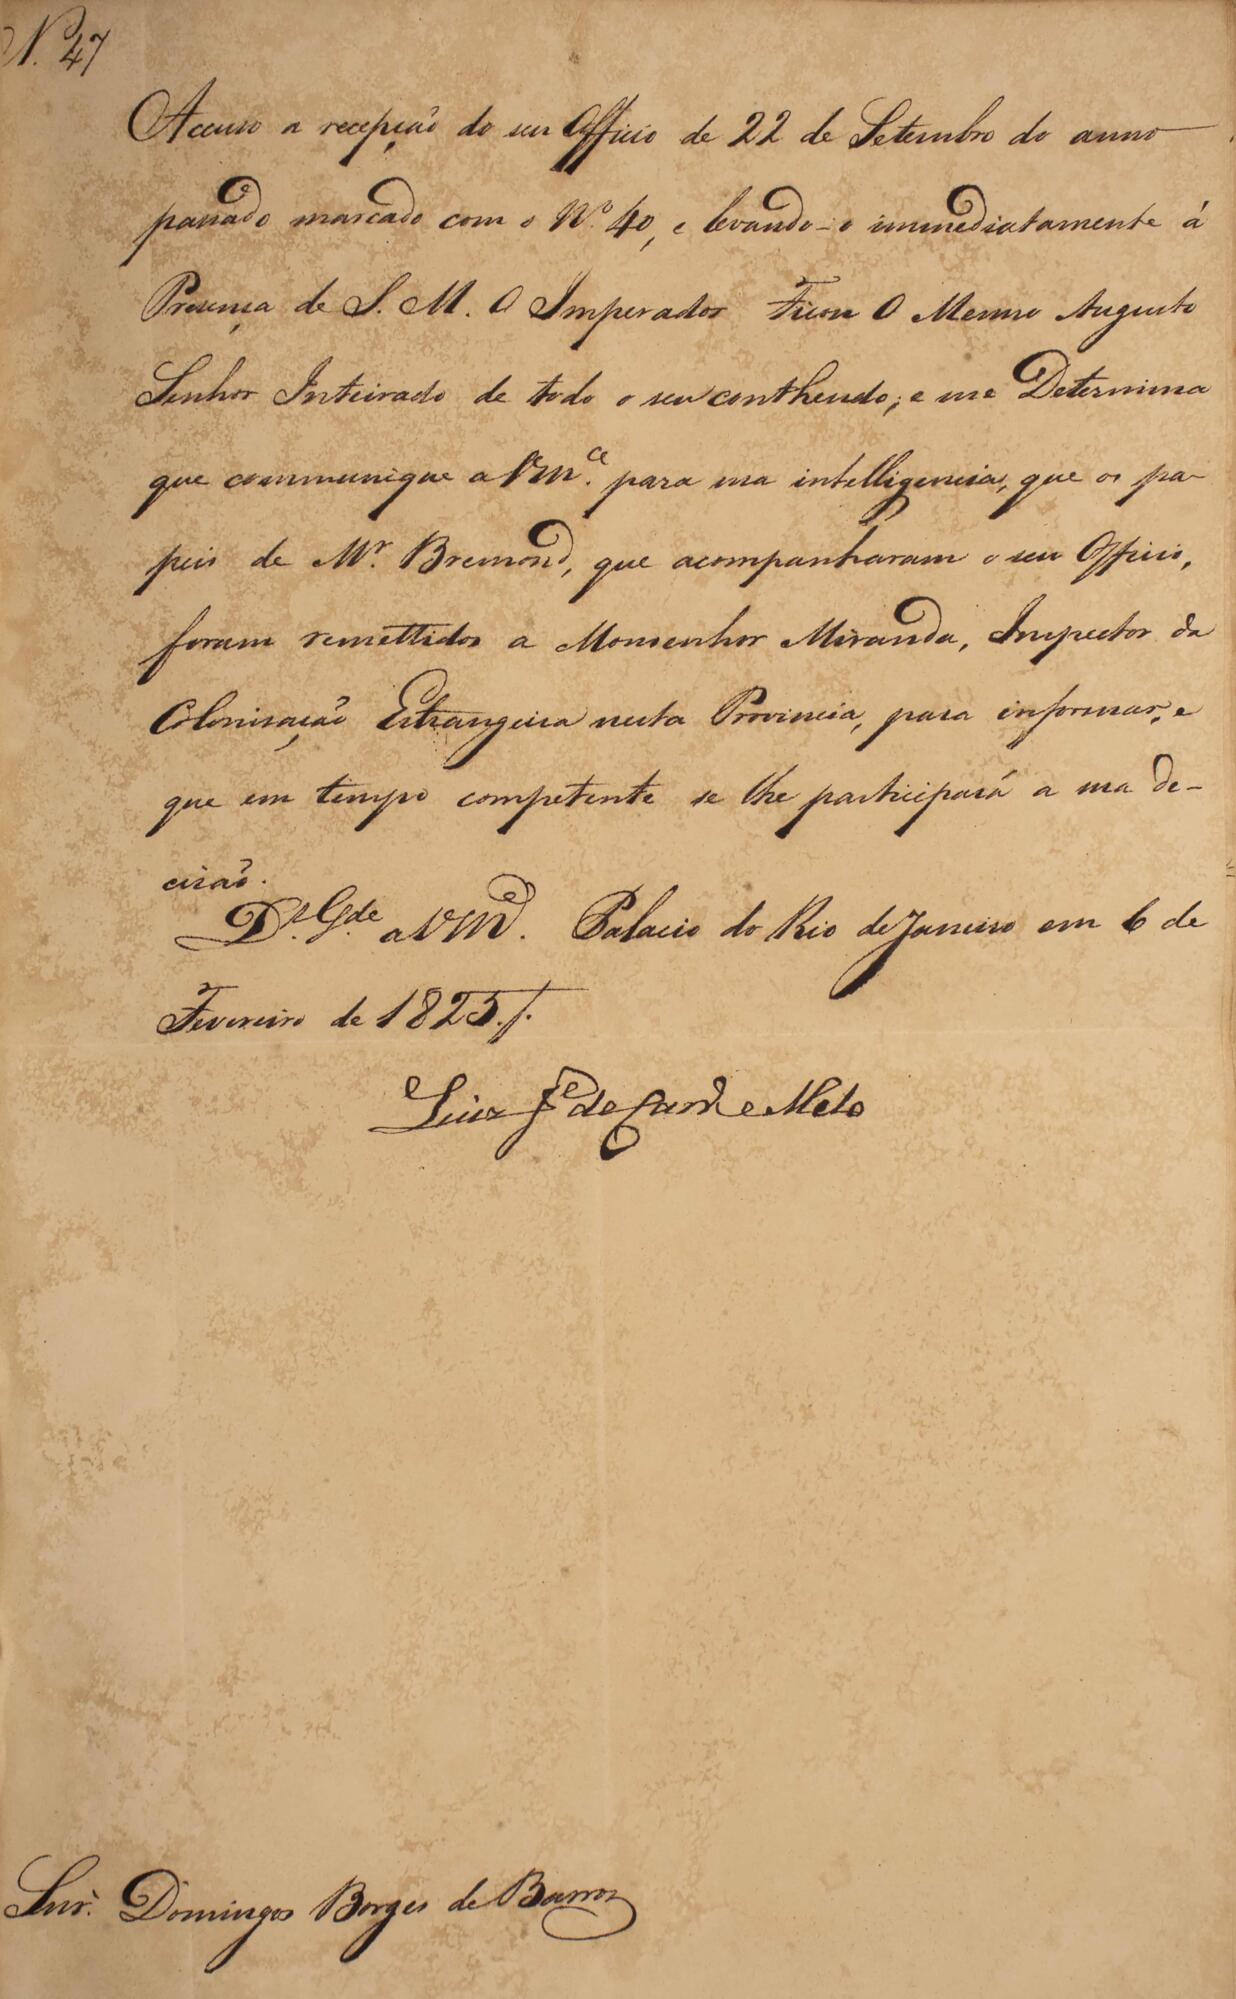 N. 47
Accuso a recepção do seu Officio de 22 de Setembro do anno
passado marcado com o N.º 40, e levando-o immediatamente á
Presença de S. M. O Imperador Ficou O Mesmo Augusto
Senhor Inteirado de todo o seu contheudo; e me Determina
que communique a Vm.ce para sua intelligencia, que os pa-
peis de Mr. Bremond, que acompanharam o seu Officio,
foram remettidos a Monsenhor Miranda, Inspector da
Colonisação Estrangeira nesta Provincia, para informar, e
que em tempo competente se lhe participará a sua de-
cisão.
D.s G.de a Vm.ce Palacio do Rio de Janeiro em 6 de
Fevereiro de 1825.
Luiz J.e de Carv.º e Mello
Snr. Domingos Borges de Barros